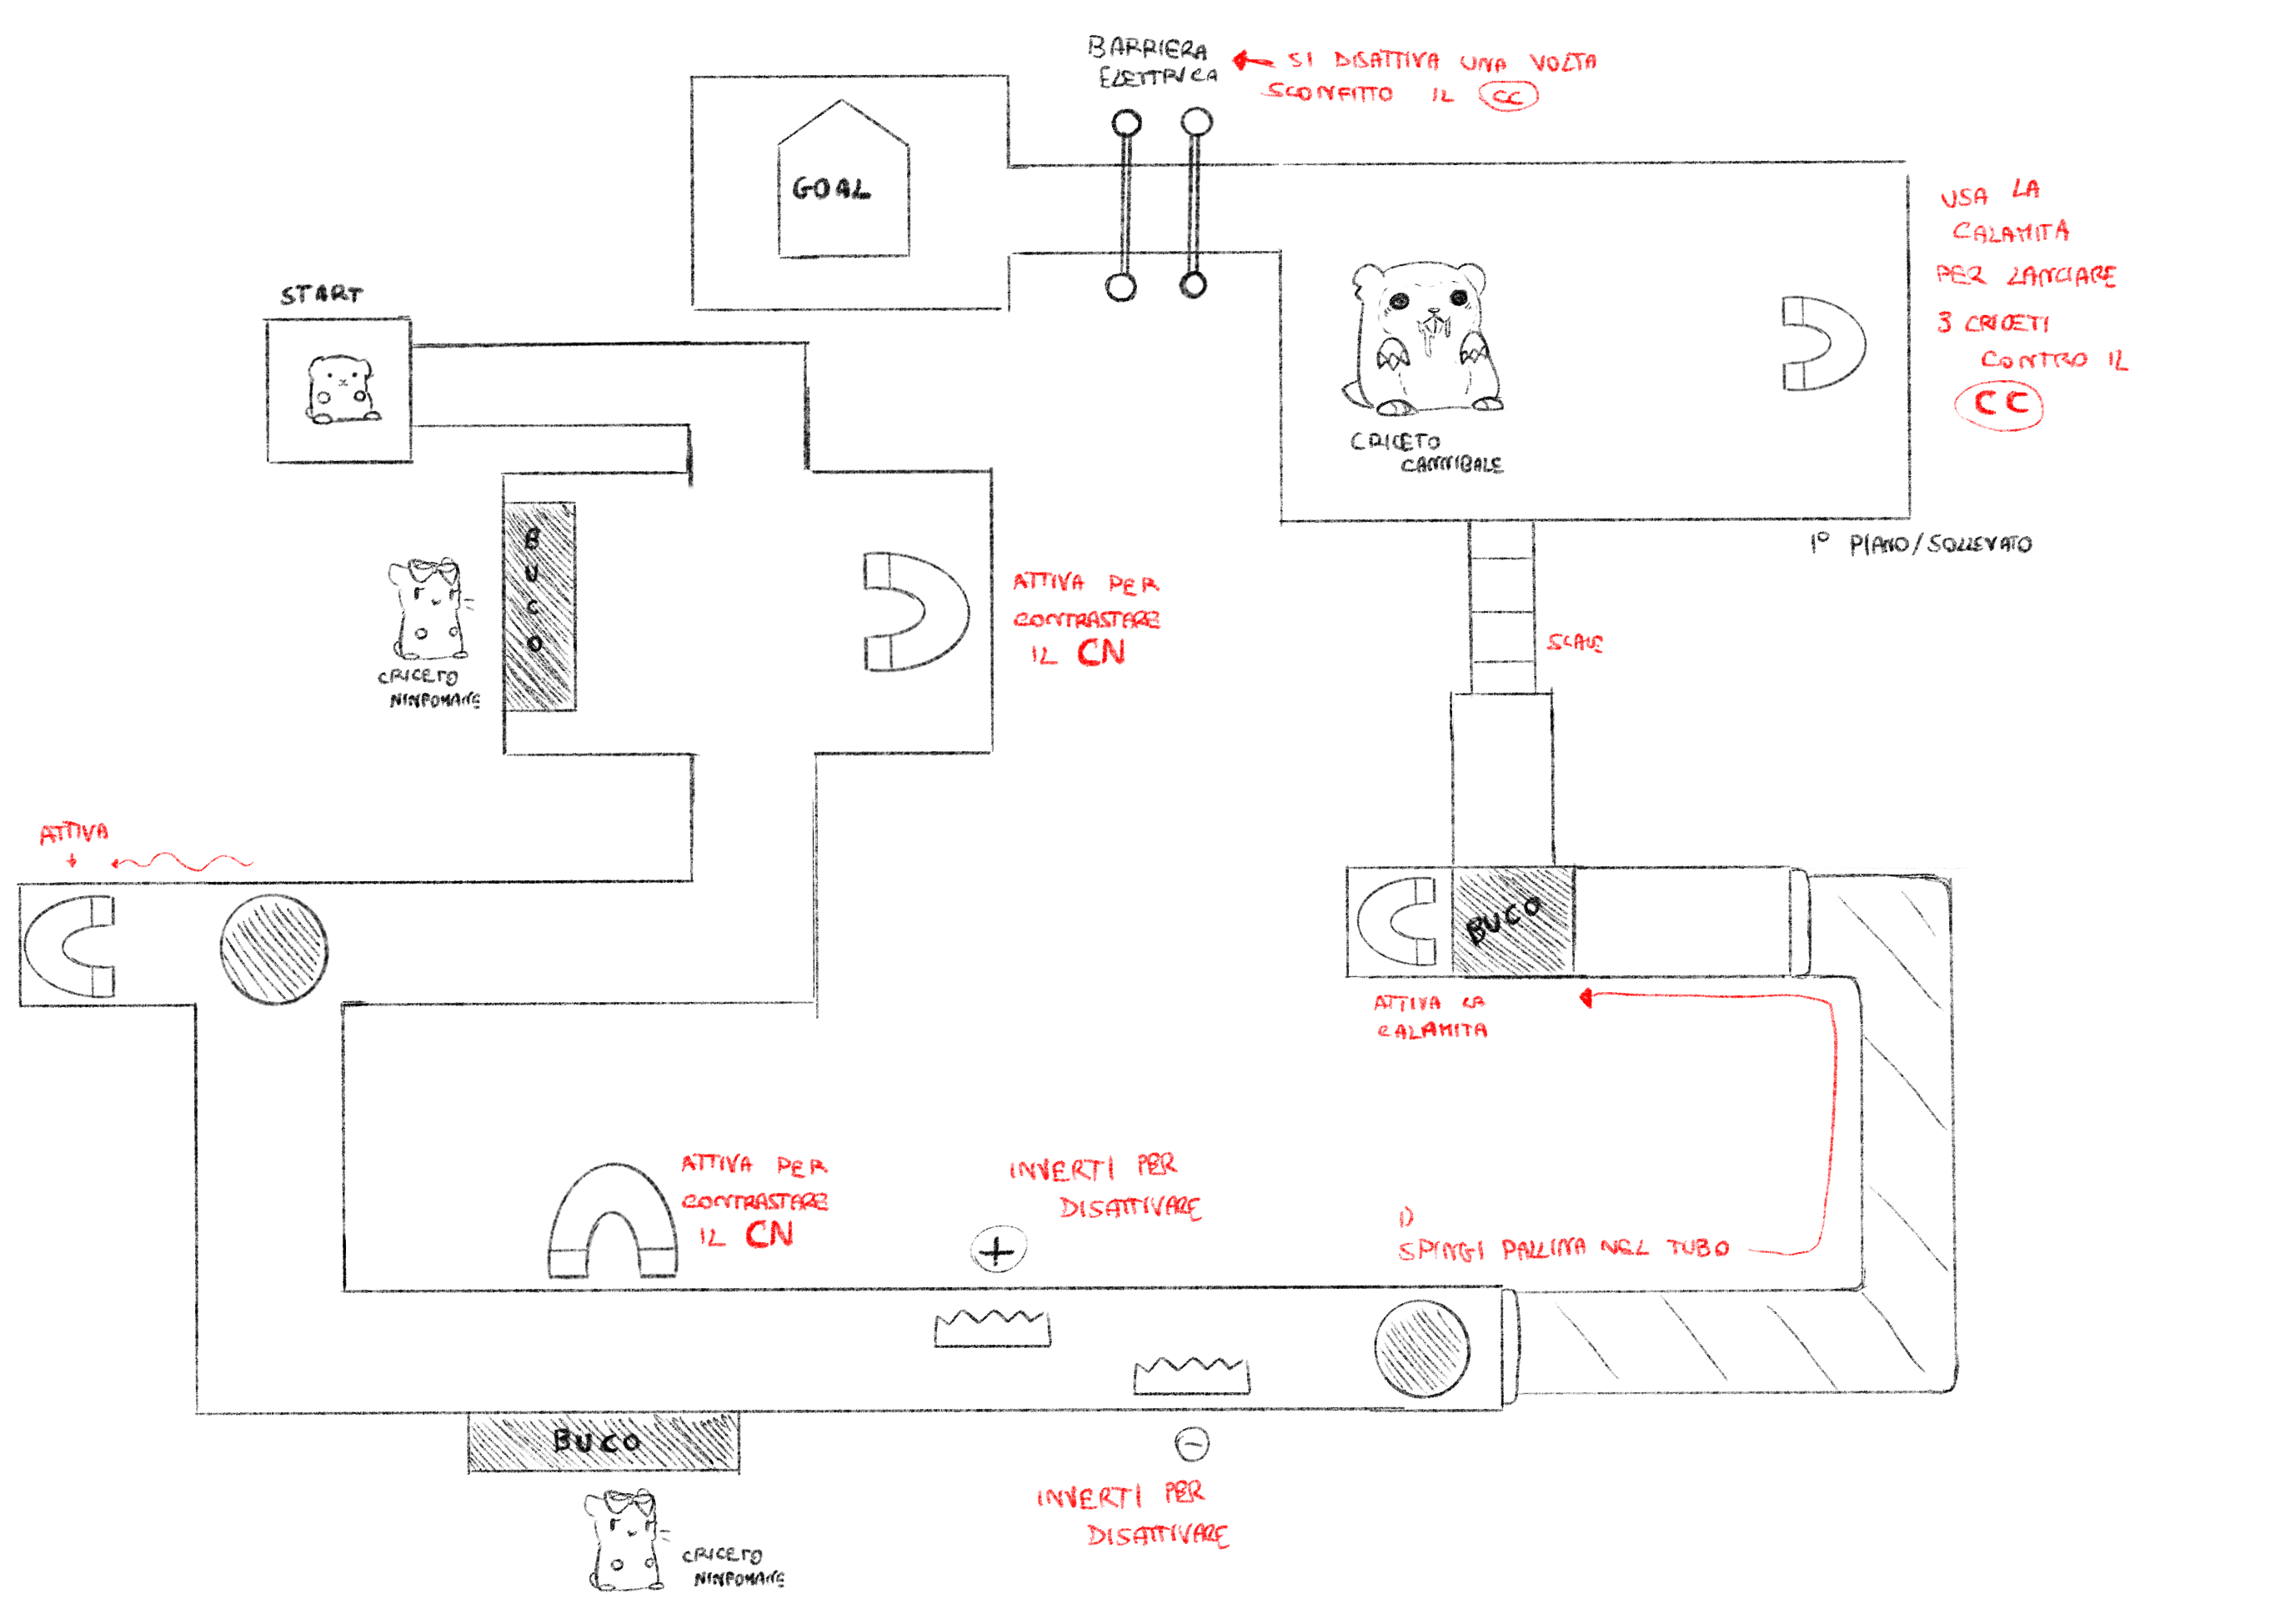 BARRIERA
ELETTRICA
SI DISATTIVA UNA VOLTA
SCONFITTO IL CC
GOAL
USA LA
CALAMITA
PER LANCIARE
3 CRICETI
CONTRO IL
CC
START
CRICETO
CANNIBALE
1° PIANO/SOLLEVATO
BUCO
ATTIVA PER
CONTRASTARE
IL CN
CRICETO
NINFOMANE
SCALE
ATTIVA
BUCO
ATTIVA LA
CALAMITA
ATTIVA PER
CONTRASTARE
IL CN
INVERTI PER
DISATTIVARE
+
1)
SPINGI PALLINA NEL TUBO
BUCO
-
INVERTI PER
DISATTIVARE
CRICETO
NINFOMANE